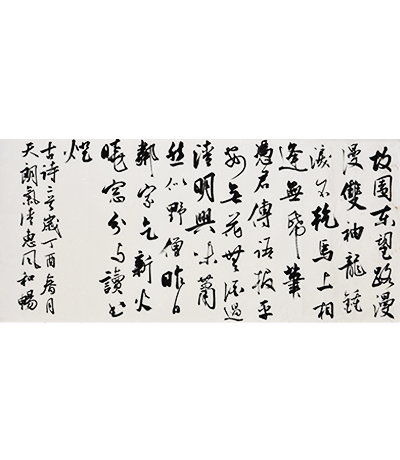 故園东望路漫
漫雙袖龍鍾
淚不乾馬上相
逢無紙筆
憑君傳語報平
安无花無酒過
清明興味蕭
然似野僧昨日
鄰家乞新火
曉窓分与讀书
燈
古詩二首歲丁酉月
天朗氣清惠風和暢